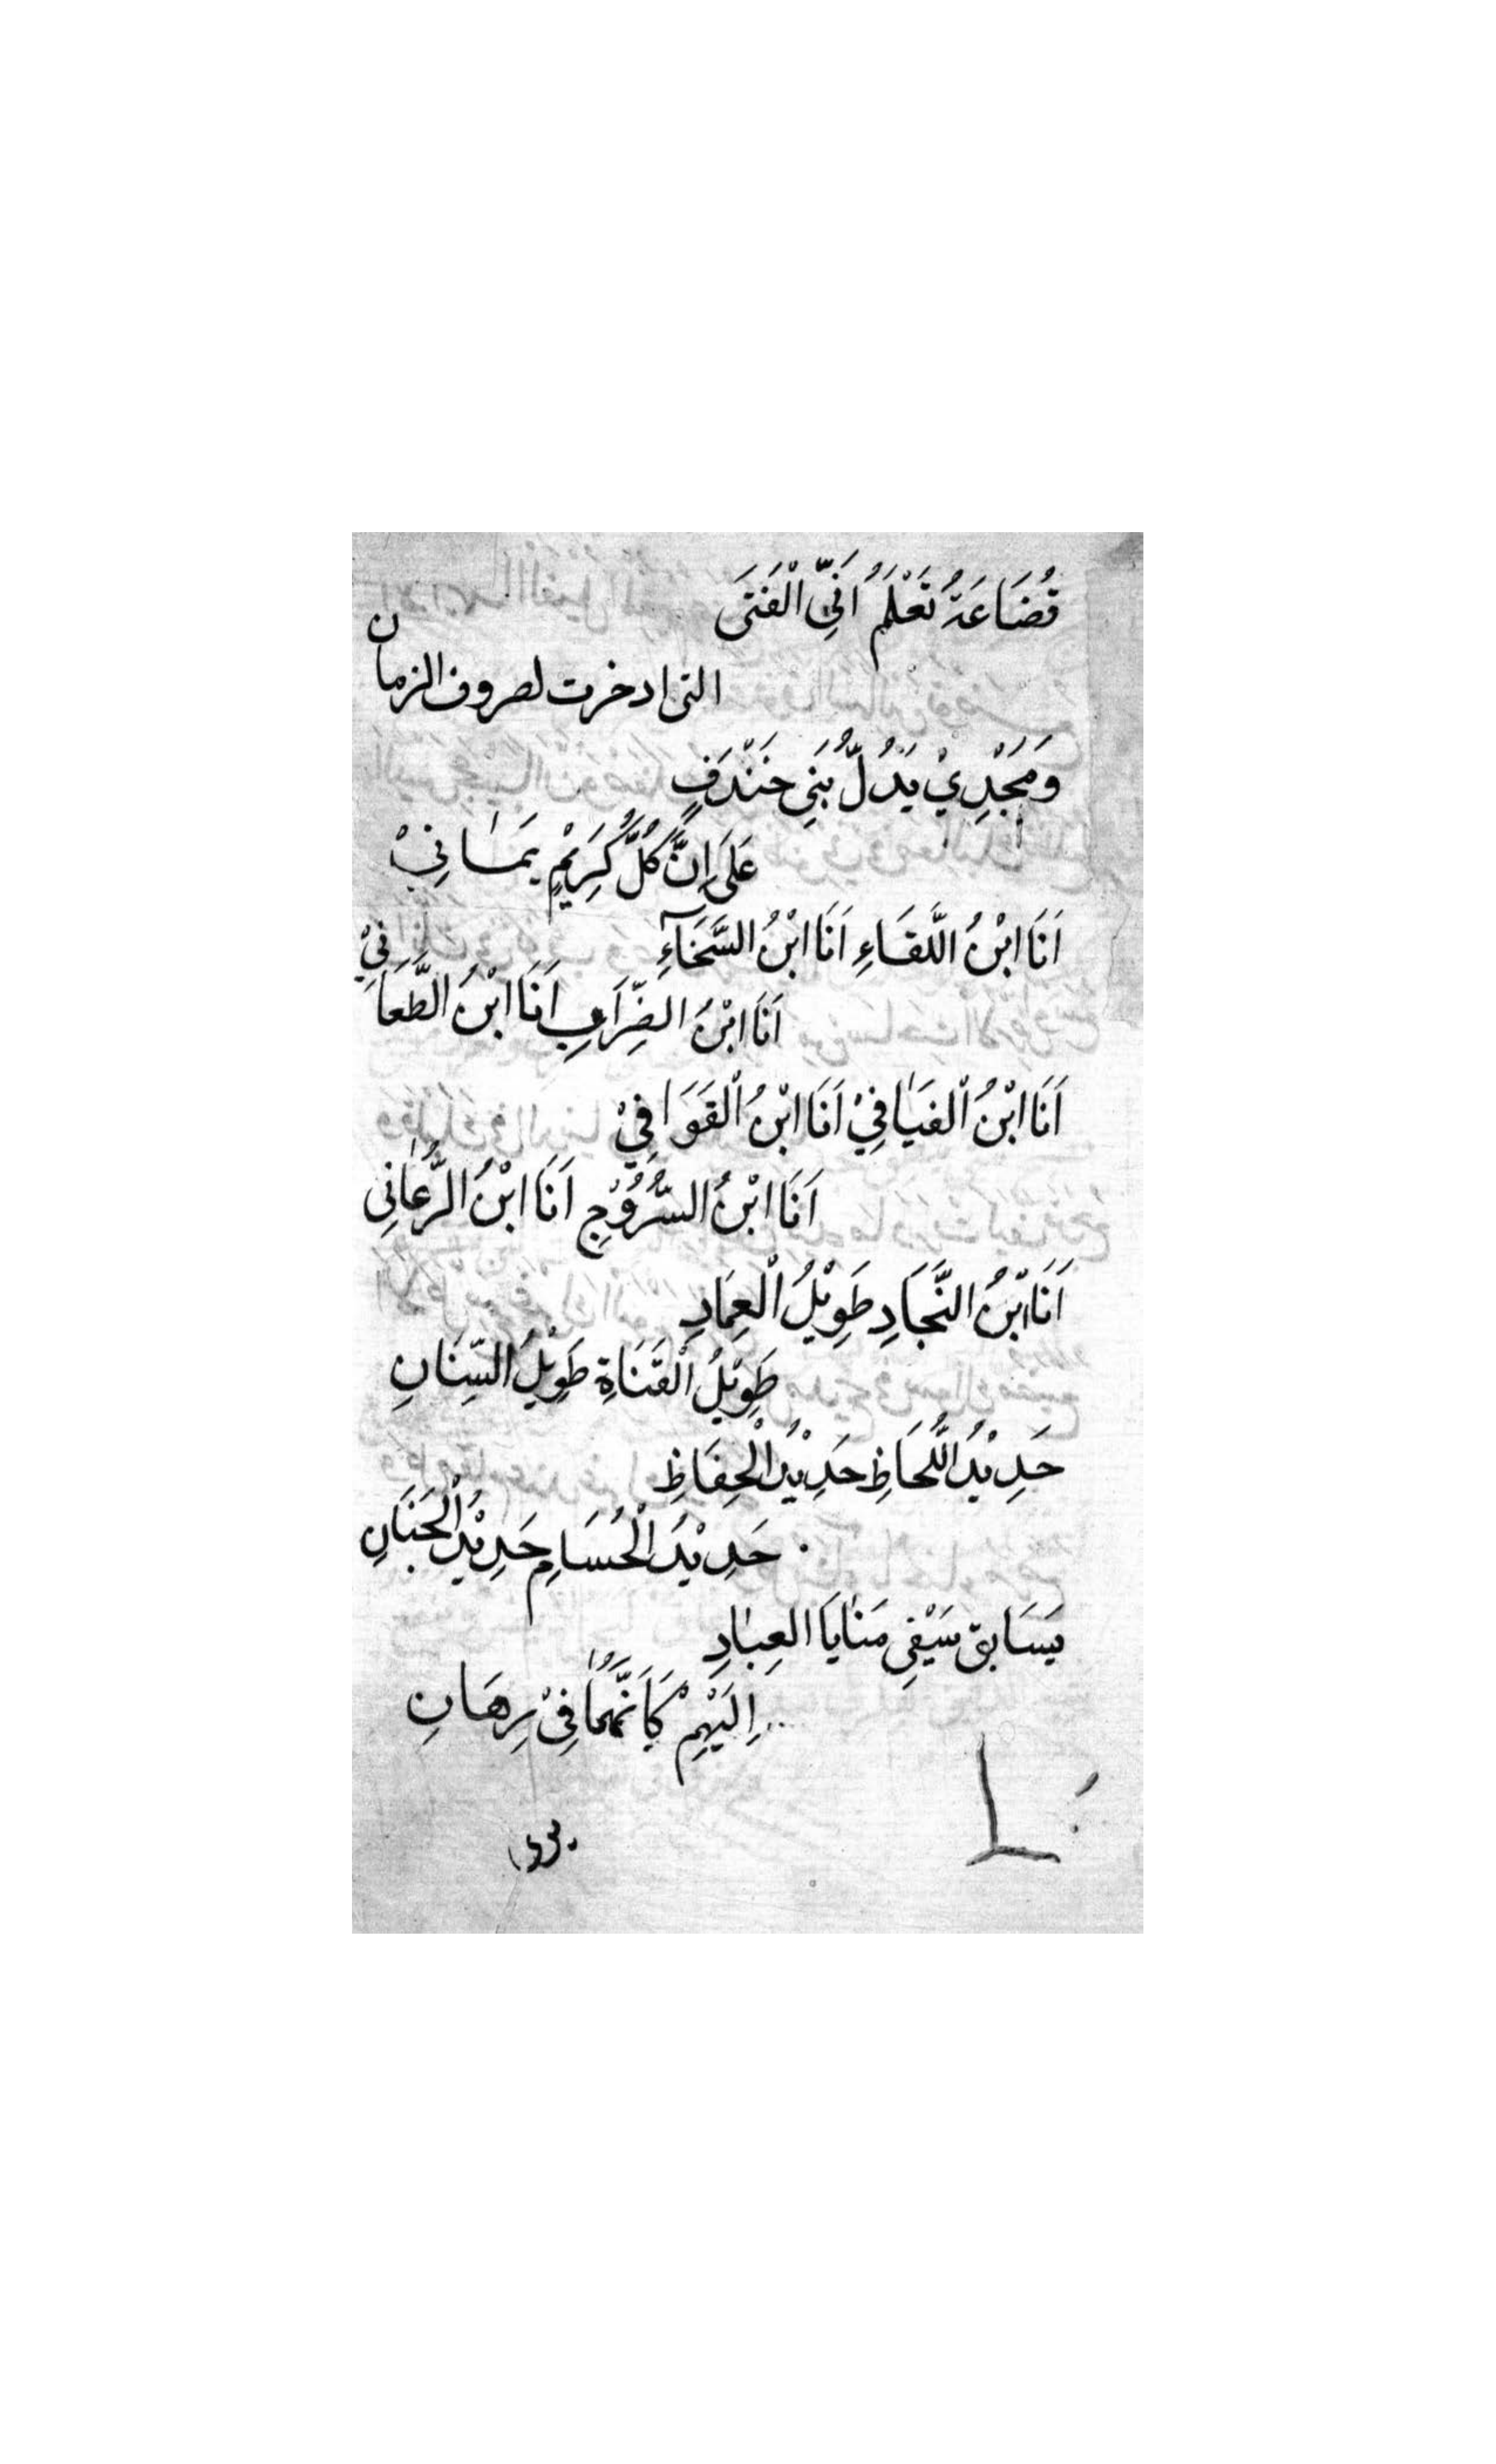 قُضَاعَةُ تَعْلَمُ اَنِّي الْفَتَى
التى ادخرت لصروف الزمان
وَمَجْدِيْ يَدُلُّ بَنِي خَنْدَفٍ
عَلَى اِنَّ كُلَّ كَرِيْمٍ يَمَانِيْ
اَنَا ابْنُ اللَّقَاءِ اَنَا ابْنُ السَّخَآءِ
اَنَا ابْنُ الضِّرَابِ اَنَا ابْنُ الطَّعَانِيْ
اَنَا ابْنُ الْفَيَافِيْ اَنَا ابْنُ الْقَوَافِيْ
اَنَا ابْنُ السُّرُوْجِ اَنَا ابْنُ الرُّعَانِى
اَنَا ابْنُ النَّجَادِ طَوِيْلُ الْعِمَادِ
طَوِيْلُ الْقَنَاةِ طَوِيْلُ السِّنَانِ
حَدِيْدُ اللَّحَاظِ حَدِيْدُ الْحِفَاظِ
حَدِيْدُ الْحُسَامِ حَدِيْدُ الْجَنَانِ
يَسَابق سَيْفِي مَنَايَا العِبَادِ
اِلَيْهِمْ كَاَنَّهُمَا فِىْ رِهَانِ